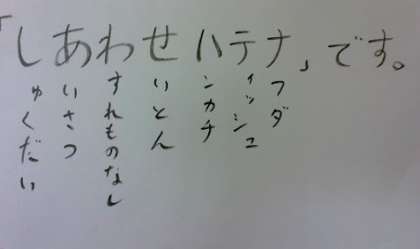 「しあわせハテナ」です。
ゅくだい
いさつ
すれものなし
いとん
ンカチ
ィッシュ
フダ